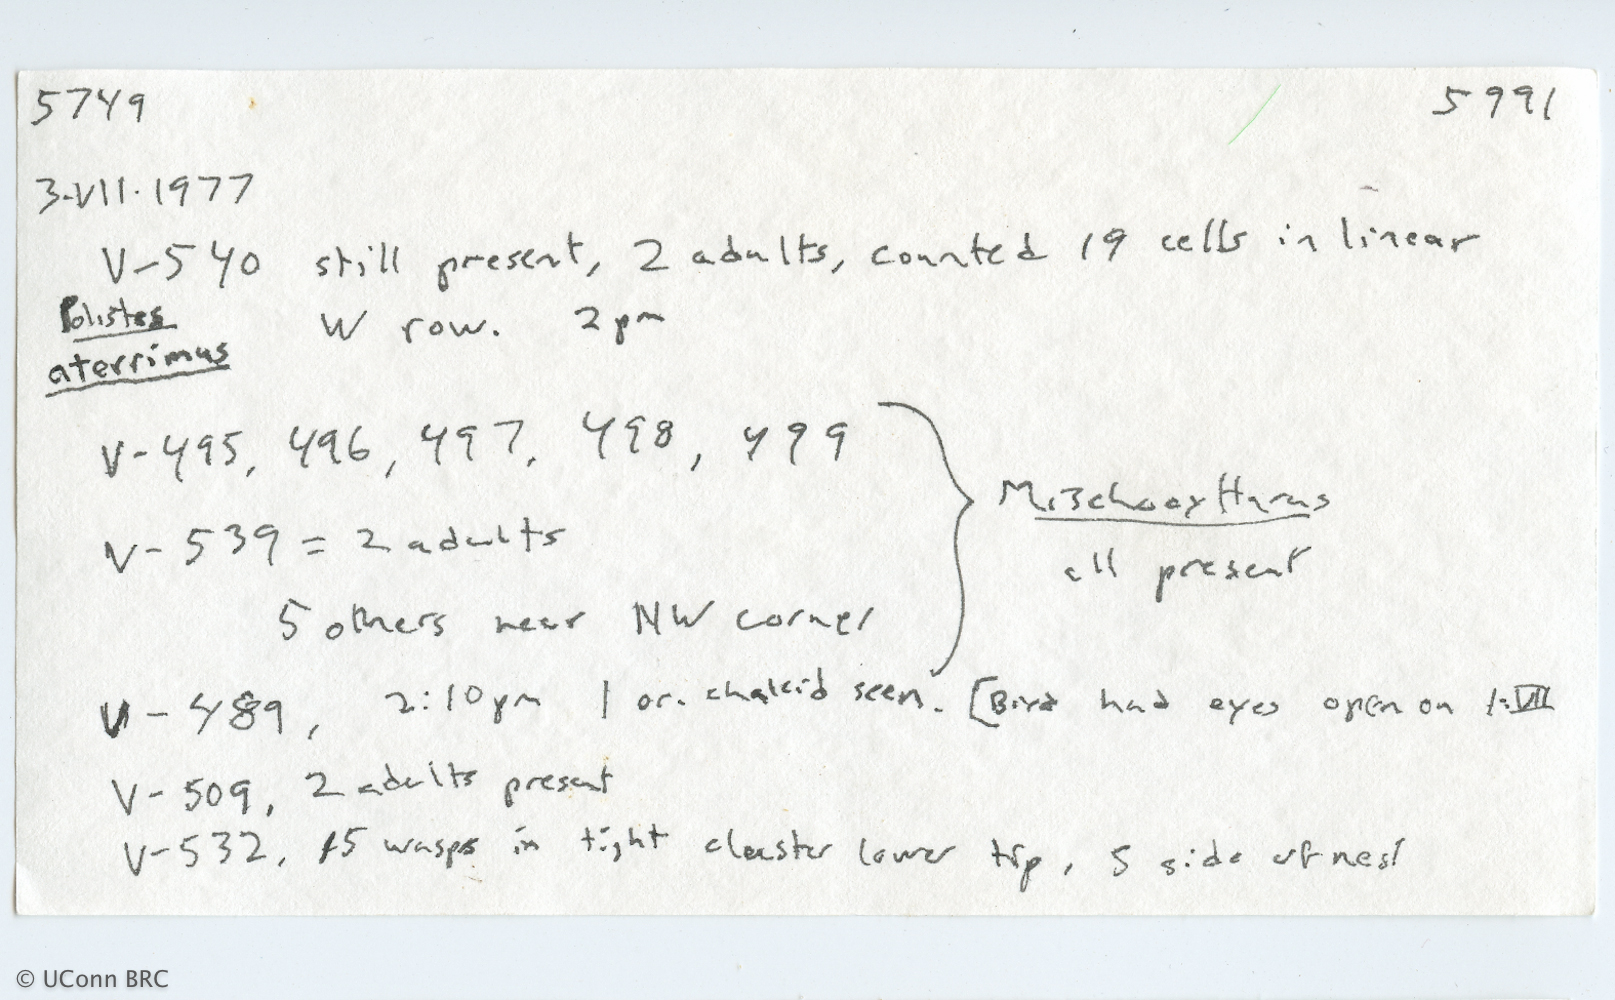 5749 5991
3·VII·1977
V-540 still present, 2 adults, counted 19 cells in linear
Polistes W row. 2pm
aterrimus
V-495, 496, 497, 498, 499
Mischocyttarus
V-539 = 2 adults
all present
5 others near NW corner
V-489, 2:10pm 1 or. chalcid seen. [Bird had eyes open on 1·VII
V-509, 2 adults present
V-532, 15 wasps in tight cluster lower tip, S side of nest
© UConn BRC